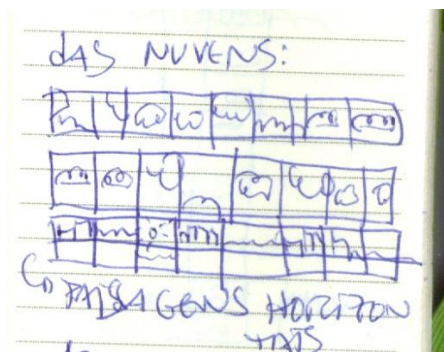 dAS NUVENS:
PAISAGENS HORIZON
TAIS